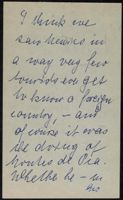 I think we
saw Mexico in
a way very few
tourists ever get
to know a foreign
country, - and
of course it was
the doing of
Montes de Oca.
Whether he - in